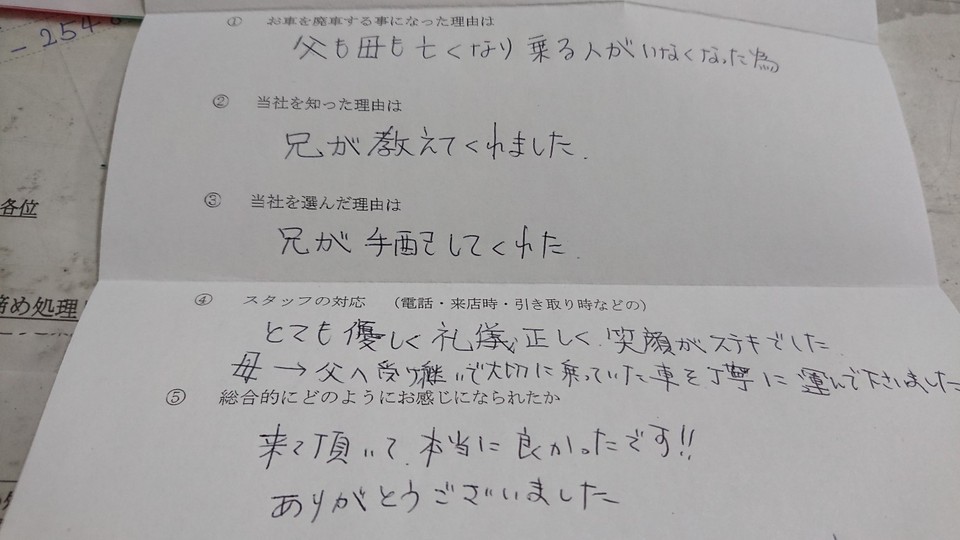 - 254
① お車を廃車する事になった理由は
父も母も亡くなり 乗る人がいなくなった為
② 当社を知った理由は
兄が教えてくれました.
各位
③ 当社を選んだ理由は
兄が手配をしてくれた.
締め処理
④ スタッフの対応 (電話・来店時・引き取り時などの)
とても優しく礼儀正しく.笑顔がステキでした
母→父へ受け継いで大切に乗っていた車を丁寧に運んで下さいました
⑤ 総合的にどのようにお感じになられたか
来て頂いて.本当に良かったです!!
ありがとうございました